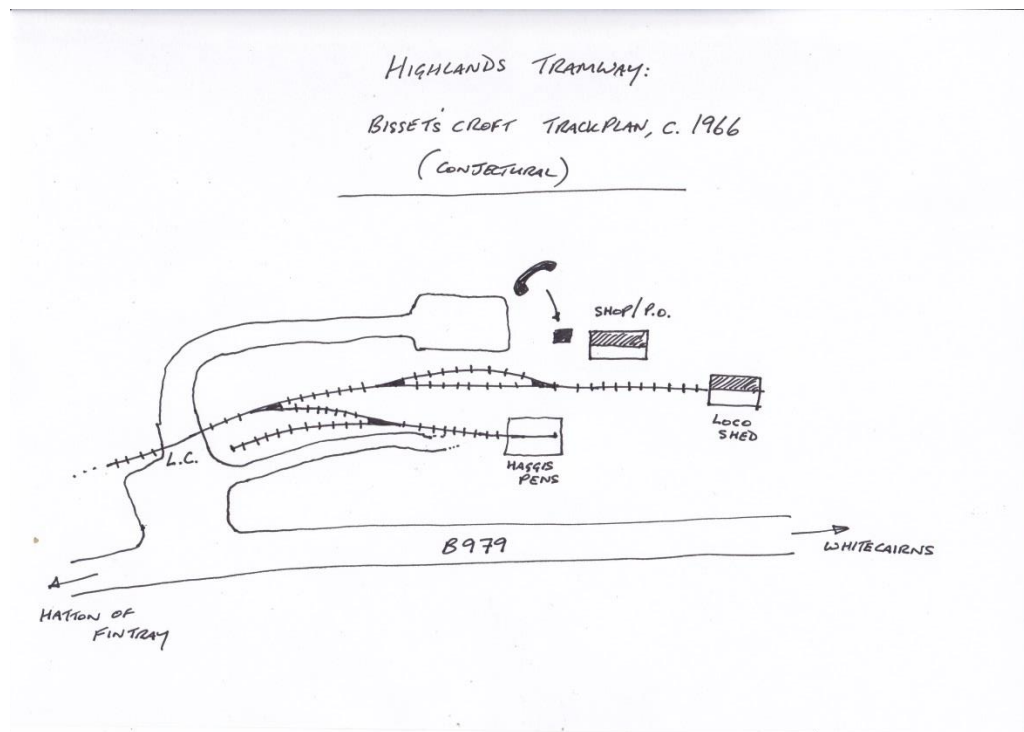 HIGHLANDS TRAMWAY:
BISSET'S CROFT TRACKPLAN, C. 1966
(CONJECTURAL)
SHOP/P.O.
LOCO
SHED
L.C.
HAGGIS
PENS
B979
WHITECAIRNS
HATTON OF
FINTRAY